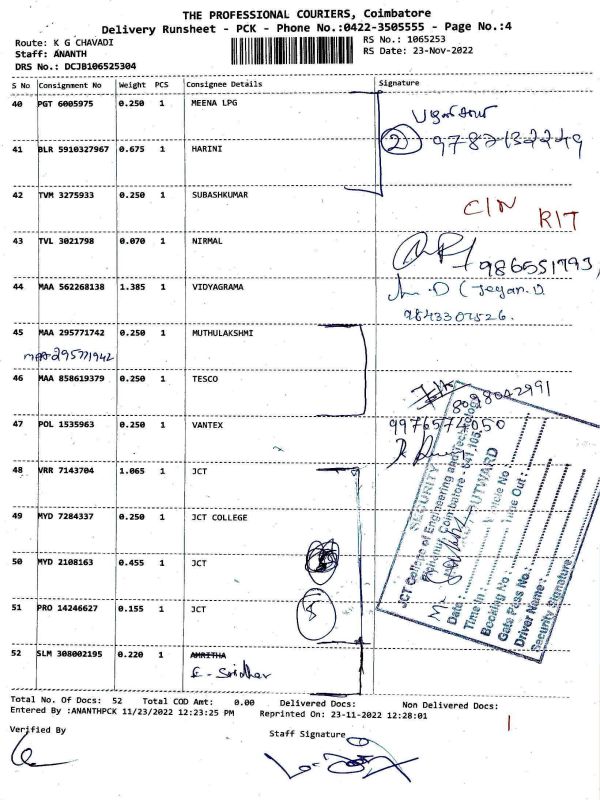 THE PROFESSIONAL COURIERS, Coimbatore
Delivery Runsheet - PCK - Phone No.:0422-3505555 - Page No.:4
Route: K G CHAVADI
Staff: ANANTH
DRS No.: DCJB106525304
RS No.: 1065253
RS Date: 23-Nov-2022
S No Consignment No Weight PCS Consignee Details Signature
40 PGT 6005975 0.250 1 MEENA LPG
41 BLR 5910327967 0.675 1 HARINI
2
42 TVM 3275933 0.250 1 SUBASHKUMAR
C/N RIT
43 TVL 3021798 0.070 1 NIRMAL
986551793
44 MAA 562268138 1.385 1 VIDYAGRAMA
(Jeyan.D
9843307526.
45 MAA 295771742 0.250 1 MUTHULAKSHMI
MAA 295771942
46 MAA 858619379 0.250 1 TESCO
8098042991
47 POL 1535963 0.250 1 VANTEX
9976574050
48 VRR 7143704 1.065 1 JCT
49 MYD 7284337 0.250 1 JCT COLLEGE
50 MYD 2108163 0.455 1 JCT
51 PRO 14246627 0.155 1 JCT
5
52 SLM 308002195 0.220 1 AMRITHA
E - Sridhar
SECURITY OUTWARD
JCT College of Engineering and Technology
Pichanur, Coimbatore - 641 105.
Date :
Vehicle No :
Time In :
Time Out :
Booking No :
Gate Pass No. :
Driver Name :
Security Signature
Total No. Of Docs: 52 Total COD Amt: 0.00 Delivered Docs: Non Delivered Docs:
Entered By :ANANTHPCK 11/23/2022 12:23:25 PM Reprinted On: 23-11-2022 12:28:01
Verified By
Staff Signature